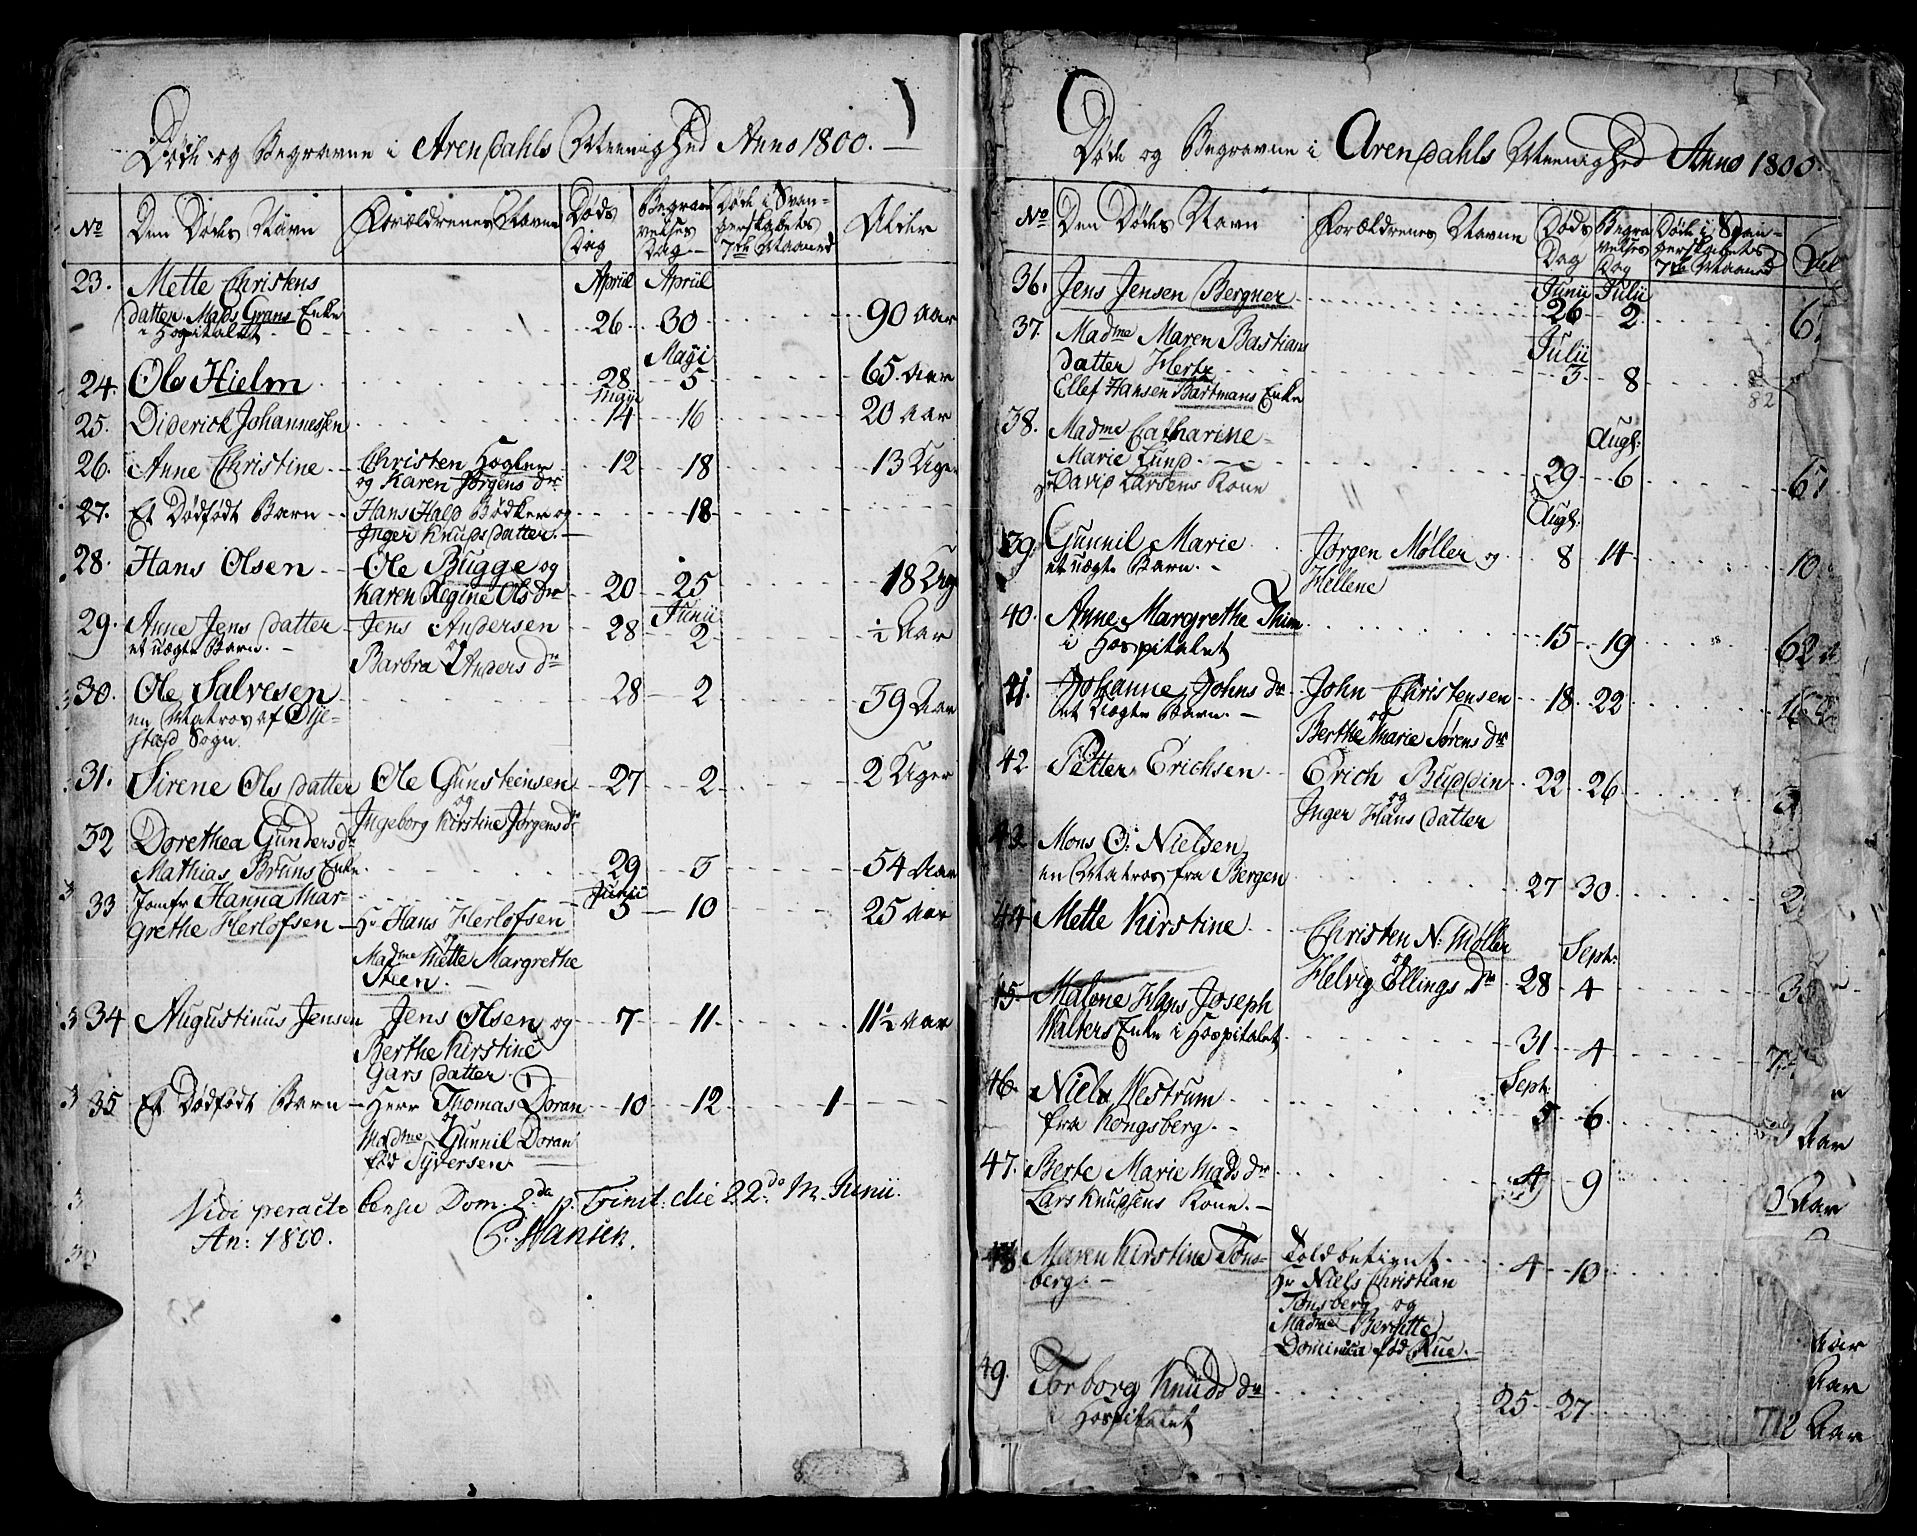 Døde og Begravne i Arendahls Meenighed Anno 1800.
No Den Dødes Navn Forældrenes Navne Døds Dag Begravelses Dag Døde i Svangerskabets 7de Maaned Alder
23. Mette Christens April April
datter Mads Grans Enke
i Hospitalet 26 30 90 Aar
Mayi
24. Ole Hielm 28 5 65 Aar
Mayi
25. Diderick Johannessen 14 16 20 Aar
26. Anne Christine Christen Hogler 12 18 13 Uger
og Karen Jørgens dr
27. Et Dødfødt Barn Hans Hald Bødker og 18
Inger Knudsdatter.
28. Hans Olsen Ole Bugge og
Karen Regine Ols dr 20 25 18 Uger
Junii
29. Anne Jens datter Jens Andersen 28 2 ½ Aar
et uægte Barn. og
Barbra Anders dr
30. Ole Salvesen 28 2 59 Aar
en Matros af Øije-
stad Sogn.
31. Sirene Ols datter Ole Gunsteensen 27 2 2 Uger
og
Ingeborg Kirstine Jørgensdr
32 Dorethea Gundersdr
Mathias Bruns Enke 29 5 54 Aar
Junii
33 Jomfr Hanna Mar- 5 10 25 Aar
grethe Herlofsen Hr Hans Herlofsen
og
Madme Mette Margrethe
Steen.
34 Augustinus Jensen Jens Olsen og 7 11 11½ Aar
Berthe Kirstine
Gars datter
35 Et Dødfødt Barn Herr Thomas Doran 10 12 1
og
Madme Gunnil Doran
fød Syversen
Vidi peracto censu Dom. 2da p. Trinit. die 22do M. Junii.
An: 1800. P. Hansen.
Døde og Begravne i Arendahls Meenighed Anno 1800.
No Den Dødes Navn Forældrenes Navne Døds Dag Begravelses Dag Døde i Svangerskabets 7de Maaned
Junii Julii
36. Jens Jensen Bergner 26 2 6
37. Madme Maren Bastians Julii
datter Hertz 3 8
Ellef Hansen Bartmans Enke 82
38. Madme Catharine Augl.
Marie Lund
Hr David Larsens Kone 29 6
Augl.
39. Gunnil Marie Jørgen Møller og 8 14 10
et uægte Barn. Hellene
40. Anne Margrethe Thim
i Hospitalet 15 19 62
41. Johanne Johns dr John Christensen 18 22
et Uægte Barn. og
Berthe Marie Sørens dr
42 Petter Erichsen Erich Buddin 22 26
og
Inger Hans datter
43. Mons O: Nielsen
en Matros fra Bergen 27 30 2
44 Mette Kirstine Christen N: Møller Sept:
og
Helvig Ellings dr 28 4
45. Malene Hans Joseph
Walters Enke i Hospitalet 31 4 7
Sept:
46. Niels Westrum
fra Kongsberg. 5 6 Aar
47. Berte Marie Mads dr 4 9
Lars Knudsens Kone. Aar
48 Maren Kirstine Tøns- Toldbetient 4 10
berg. Hr Niels Christian
Tønsberg og
Madme Bergitte
Dominica fød Rue. Aar
49. Torborg Knuds dr Aar
i Hospitalet 25 27 Aar